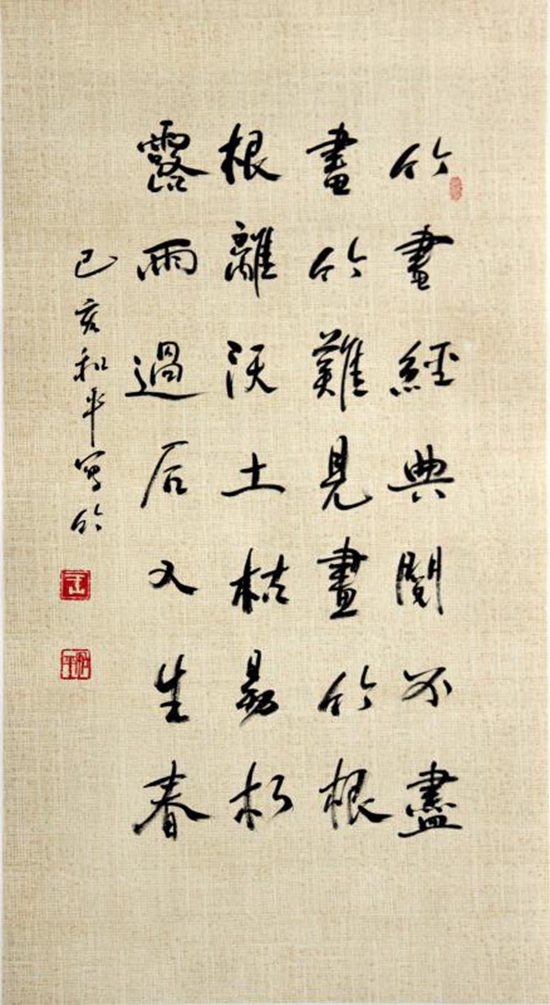 竹畫經典閱不盡
畫竹難見畫竹根
根離沃土枯易朽
露雨過后又生春
己亥和平寫竹